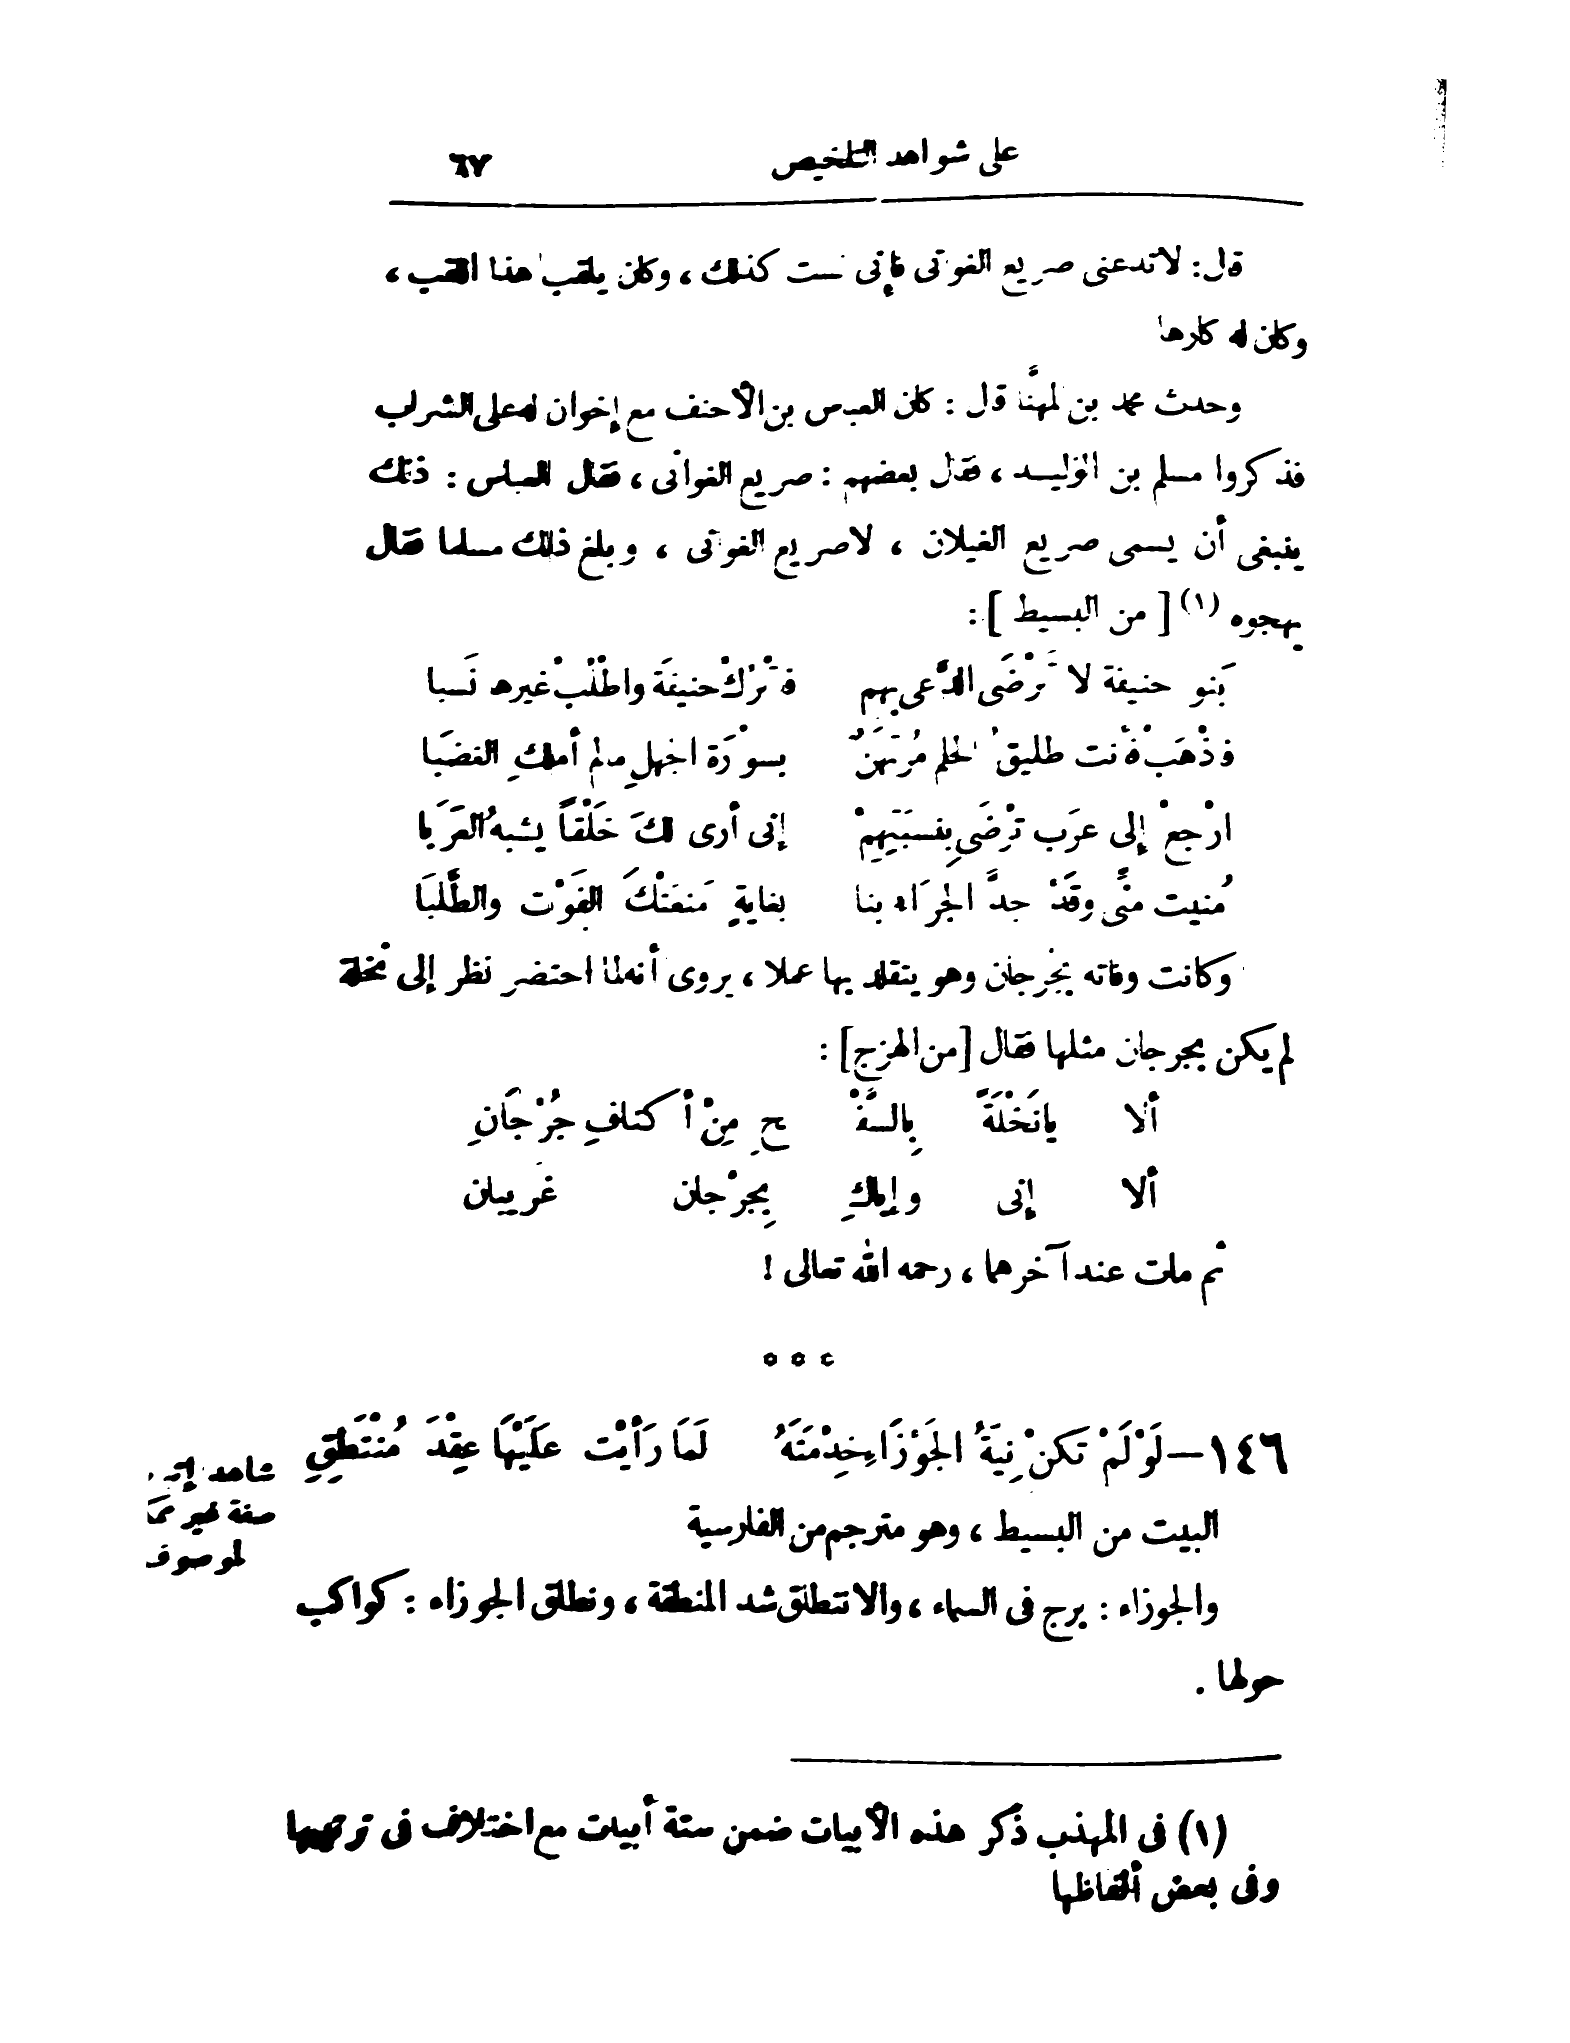 على شواهد التلخيص ٦٧
قال: لا تدعنى صريع الغوانى فإنى لست كذلك ، وكان يلقب هذا اللقب ،
وكان له كارها
وحدث محمد بن المهنَّا قال : كان العباس بن الأحنف مع إخوان له على الشراب
فذكروا مسلم بن الوليد ، فقال بعضهم : صريع الغوانى ، فقال العباس : ذلك
ينبغى أن يسمى صريع الغيلان ، لا صريع الغوانى ، وبلغ ذلك مسلما فقال
يهجوه (١) [ من البسيط ] :
بَنو حنيفة لا تَرْضَى الدَّعى بهم فاتْرُكْ حنيفَة واطْلُبْ غيرها نَسبا
فاذْهَبْ فأنت طليقُ الحلم مُرْتَهَنٌ بسوْرَة الجهلِ مالم أملكِ الغضَبا
ارْجعْ إلى عرَب تَرْضَى بِنسبَتِهِمْ إنى أرى لكَ خَلْقاً يشبهُ العَرَبا
مُنيت منِّى وقَدْ جدَّ الجرَاء بنا بغايةٍ مَنعَتْكَ الفَوْت والطَّلبَا
وكانت وفاته بجُرجان وهو يتقلد بها عملا ، يروى أنه لما احتضر نظر إلى نخلة
لم يكن بجرجان مثلها فقال [من الهزج] :
ألا يانَخْلَةً بِالسَّفْـ ـحِ مِنْ أكنافِ جُرْجَانِ
ألا إنى وإياكِ بِجرْجان غريبان
ثم مات عند آخرهما ، رحمه الله تعالى !
° ° °
١٤٦ – لَوْ لَمْ تَكنْ نِيَةُ الجَوْزَاءِ خِدْمَتَهُ لَمَا رَأَيْت عَلَيْهَا عِقْدَ مُنْتَطِقِ
شاهد إثبات
صفة غير ممكنة
لموصوف
البيت من البسيط ، وهو مترجم من الفارسية
والجوزاء : برج فى السماء ، والانتطاق شد المنطقة ، ونطاق الجوزاء : كواكب
حولها .
(١) فى المهذب ذكر هذه الأبيات ضمن ستة أبيات مع اختلاف فى ترتيبها
وفى بعض ألفاظها